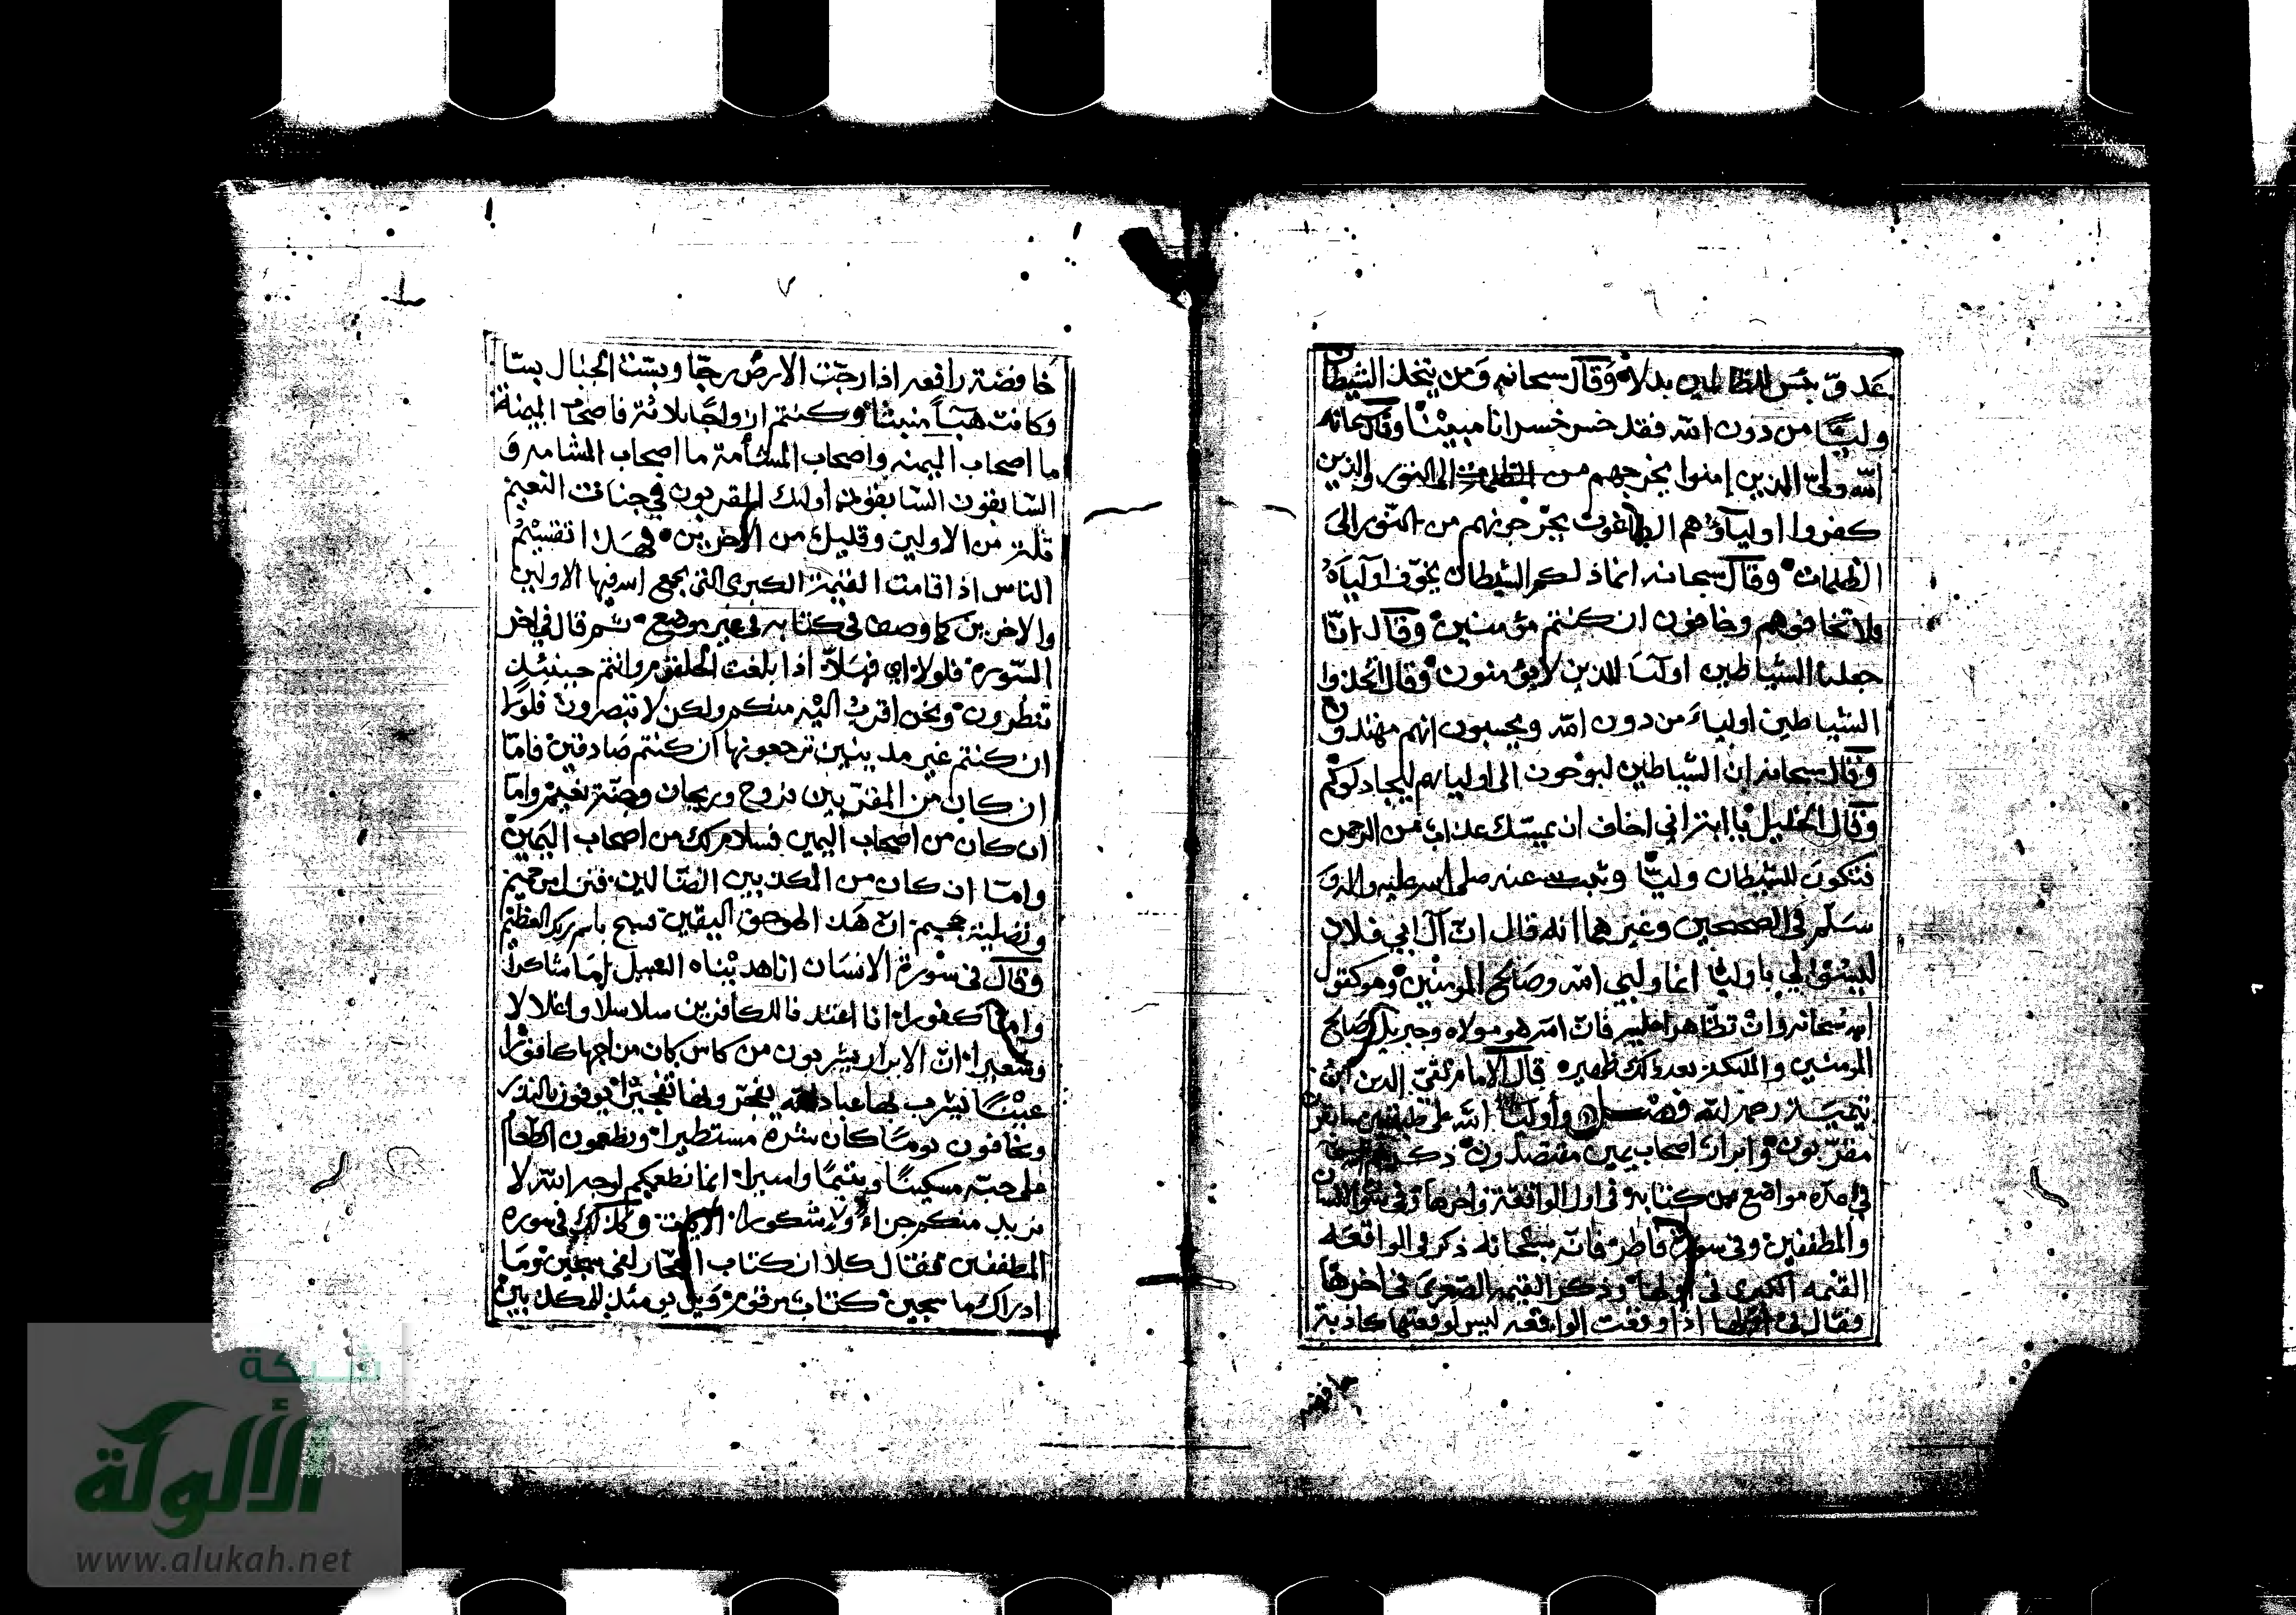 عدوّ بئس للظالمين بدلا وقال سبحانه ومن يتخذ الشيطان
وليًّا من دون الله فقد خسر خسرانا مبينا وقال سبحانه
الله وليّ الذين امنوا يخرجهم من الظلمات الى النور والذين
كفروا اولياؤهم الطاغوت يخرجونهم من النور الى
الظلمات وقال سبحانه انما ذلكم الشيطان يخوّف اولياءه
فلا تخافوهم وخافون ان كنتم مؤمنين وقال انّا
جعلنا الشياطين اولياء للذين لا يؤمنون وقال اتخذوا
الشياطين اولياء من دون الله ويحسبون انهم مهتدون
وقال سبحانه ان الشياطين ليوحون الى اوليائهم ليجادلوكم
وقال الخليل يا ابت اني اخاف ان يمسّك عذاب من الرحمن
فتكون للشيطان وليًّا وثبت عنه صلى الله عليه واله و
سلّم في الصحيحين وغيرهما انه قال انّ آل ابي فلان
ليسوا لي باوليا انما وليي الله وصالح المؤمنين وهو كقول
الله سبحانه وان تظاهرا عليه فان الله هو مولاه وجبريل وصالح
المؤمنين والملئكة بعد ذلك ظهير قال الامام تقيّ الدين ابن
تيميّة رحمه الله فصل واوليا الله على طبقتين سابقون
مقرّبون وابرار اصحاب يمين مقتصدون ذكرهم الله
في عدّة مواضع من كتابه في اول الواقعة واخرها وفي سورة الانسان
والمطففين وفي سورة فاطر فانّه سبحانه ذكر في الواقعه
القيمه الكبرى في اولها وذكر القيمه الصغرى في اخرها
فقال في اولها اذا وقعت الواقعه ليس لوقعتها كاذبة
خافضة
٧
خافضة رافعه اذا رجّت الارض رجّا وبسّت الجبال بسّا
وكانت هباءً منبثا وكنتم ازواجًا ثلاثة فاصحاب الميمنة
ما اصحاب الميمنه واصحاب المشأمة ما اصحاب المشامه و
السّابقون السّابقون اولئك المقربون في جنات النعيم
ثلّة من الاولين وقليل من الاخرين فهذا تقسيم
الناس اذا قامت القيمة الكبرى التي يجمع الله فيها الاولين
والاخرين كما وصف في كتابه في غير موضع ثم قال في اخر
السّوره فلولا اي فهلّا اذا بلغت الحلقوم وانتم حينئذ
تنظرون ونحن اقرب اليه منكم ولكن لا تبصرون فلولا
ان كنتم غير مدينين ترجعونها ان كنتم صادقين فامّا
ان كان من المقرّبين فروح وريحان وجنّة نعيم وامّا
ان كان من اصحاب اليمين فسلام لك من اصحاب اليمين
وامّا ان كان من المكذبين الضالين فنزل من حميم
وتصلية جحيم انّ هذا لهو حق اليقين فسبح باسم ربك العظيم
وقال في سورة الانسان انا هديناه السبيل إمّا شاكرًا
وامّا كفورا انا اعتدنا للكافرين سلاسلا واغلالا
وسعيرا انّ الابرار يشربون من كاس كان مزاجها كافورا
عينًا يشرب بها عباد الله يفجّرونها تفجيرا يوفون بالنذر
ويخافون يومًا كان شره مستطيرا ويطعمون الطعام
على حبّه مسكينًا ويتيمًا واسيرا انما نطعمكم لوجه الله لا
نريد منكم جزاءً ولا شكورا الآيات وكذلك في سورة
المطففين فقال كلا ان كتاب الفجّار لفي سجين وما
ادراك ما سجين كتاب مرقوم ويل يومئذ للمكذبين
شبكة
الألوكة
www.alukah.net